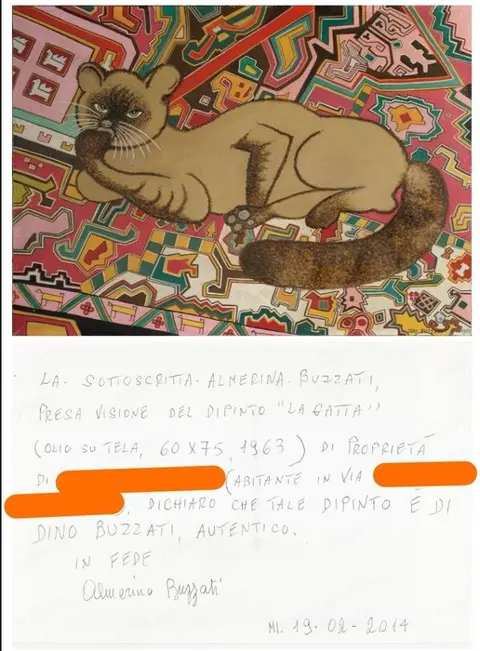 LA. SOTTOSCRITTA. ALMERINA. BUZZATI,
PRESA VISIONE DEL DIPINTO "LA GATTA"
(OLIO SU TELA, 60 X 75, 1963) DI PROPRIETÀ
DI (ABITANTE IN VIA
), DICHIARO CHE TALE DIPINTO È DI
DINO BUZZATI, AUTENTICO.
IN FEDE
Almerina Buzzati
MI. 19. 02 - 2014